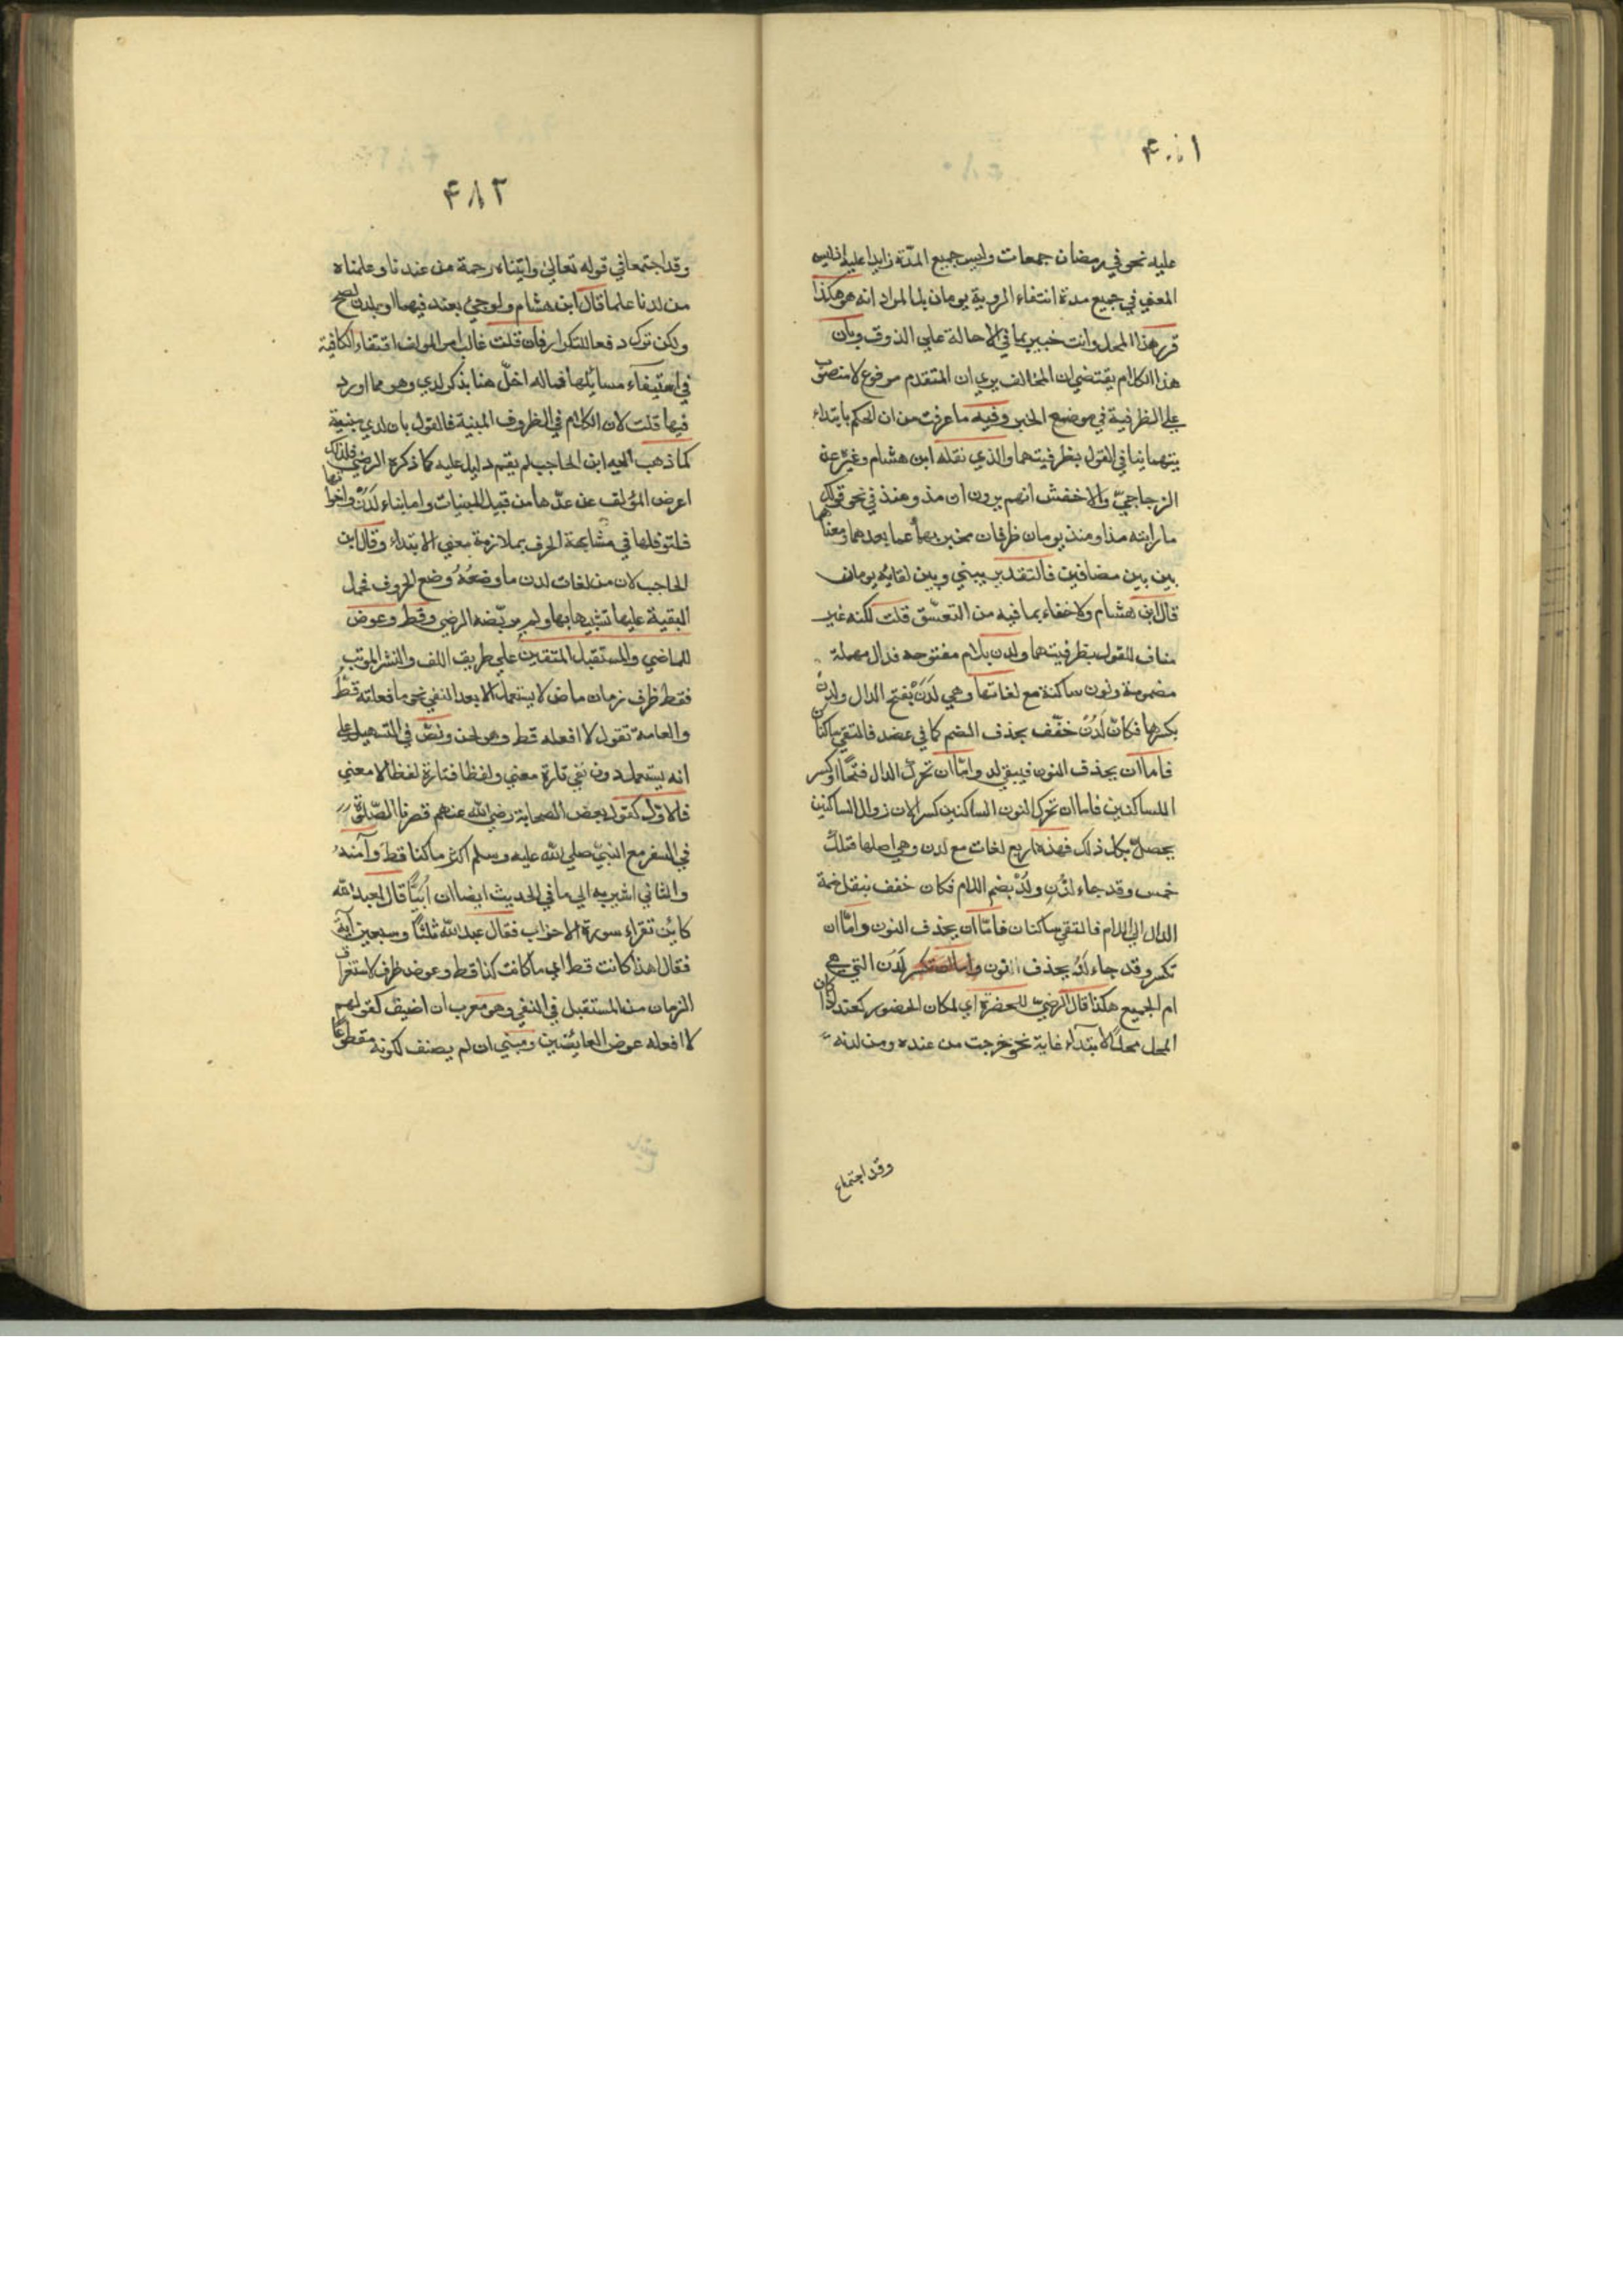 ۴۸۱
عليه نحو في رمضان جمعات وليس جميع المدّة زايدا عليه اذ ليس
المعني في جميع مدة انتفاء الروية يومان بل المراد انه هو هكذا
قرر هذا المحل وانت خبير بما في الاحالة علي الذوق وبان
هذا الكلام يقتضي ان المخالف يري ان المتقدم مرفوع لا منصوب
علي الظرفية في موضع الخبر وفيه ما عرفت من ان الحكم بابتداء
يتهما ينافي القول بظرفيتهما والذي نقله ابن هشام وغيره عن
الزجاجيّ والاخفش انهم يرون ان مذ ومنذ في نحو قولك
ما رايته مذ او منذ يومان ظرفان مخبر بهما عما بعدهما ومعناهما
بين بين مضافين فالتقدير بيني وبين لقايه يومان
قال ابن هشام ولا خفاء بما فيه من التعسّق قلت لكنه غير
مناف للقول بظرفيتهما ولدن بلام مفتوحه فدال مهملة
مضمومة ونون ساكنة مع لغاتها وهي لَدَنْ بفتح الدال ولَدِنْ
بكسرها فكانّ لَدُنْ خفّف بحذف الضم كما في عضد فالتقي ساكنان
فاما ان يحذف النون فيبقي لد واما ان تحرّك الدال فتحا او كسر
اللساكنين فاما ان تحرك النون الساكنين كسرا لان زوال الساكنين
يحصل بكل ذلك فهذه اربع لغات مع لدن وهي اصلها فتلك
خمس وقد جاء لُدْنِ ولُدْ بضم اللام فكان خفف بنقل ضمة
الدال الي اللام فالتقي ساكنان فامّا ان يحذف النون وامّا ان
تكسر وقد جاء لَدُ بحذف النون لَدُن التي هي
ام الجميع هكذا قال الرضيّ للحضرة اي لمكان الحضور كعند اذا كان
المحل محل الابتداء غاية نحو خرجت من عنده ومن لدنه
وقد اجتماع
۴۸۲
وقد اجتمعا في قوله تعالي واتيناه رحمة من عندنا وعلمناه
من لدنا علما قال ابن هشام ولو جيء بعند فيهما او بلدن لصح
ولكن ترك دفعا للتكرار فان قلت غالب امر المولف اقتفاء الكافية
في استيفاء مسايلها فما له اخلّ هنا بذكر لدي وهو مما اورد
فيها قلت لان الكلام في الظروف المبنية فالقول بان لدي مبنية
كما ذهب اليه ابن الحاجب لم يقم دليل عليه كما ذكره الرضيّ فلذلك
اعرض المؤلف عن عدّها من قبيل المبنيات واما بناء لَدُنْ واخواتها
فلتوغلها في مشابهة الحرف بملازمة معني الابتداء وقال ابن
الحاجب لان من لغات لدن ما وضعُهُ وضع الحروف فحمل
البقية عليها تشبيها بها ولم يرتضه الرضي وقط وعوض
للماضي والمستقبل المنتفين علي طريق اللف والنشر المرتب
فقط ظرف زمان ماض لا يستعمل الا بعد النفي نحو ما فعلته قطُّ
والعامة تقول لا افعله قط وهو لحن ونصّ في التسهيل علي
انه يستعمل دون نفي تارة معني ولفظا فتارة لفظا لا معني
فالاول كقول بعض الصحابة رضي الله عنهم قصرنا الصّلوة
في السفر مع النبيّ صلي الله عليه وسلم اكثر ما كنا قط وآمنه
والثاني اشير به الي ما في الحديث ايضا ان اُبيًّا قال لعبد الله
كايّن تقراء سورة الاحزاب فقال عبد الله ثلثًا وسبعين آية
فقال هذا كانت قط اي ما كانت كذا قط وعوض ظرف لاستغراق
الزمان من المستقبل في النفي وهو معرب ان اضيف كقولهم
لا افعله عوض العايضين ومبني ان لم يضف لكونه مقطوعا